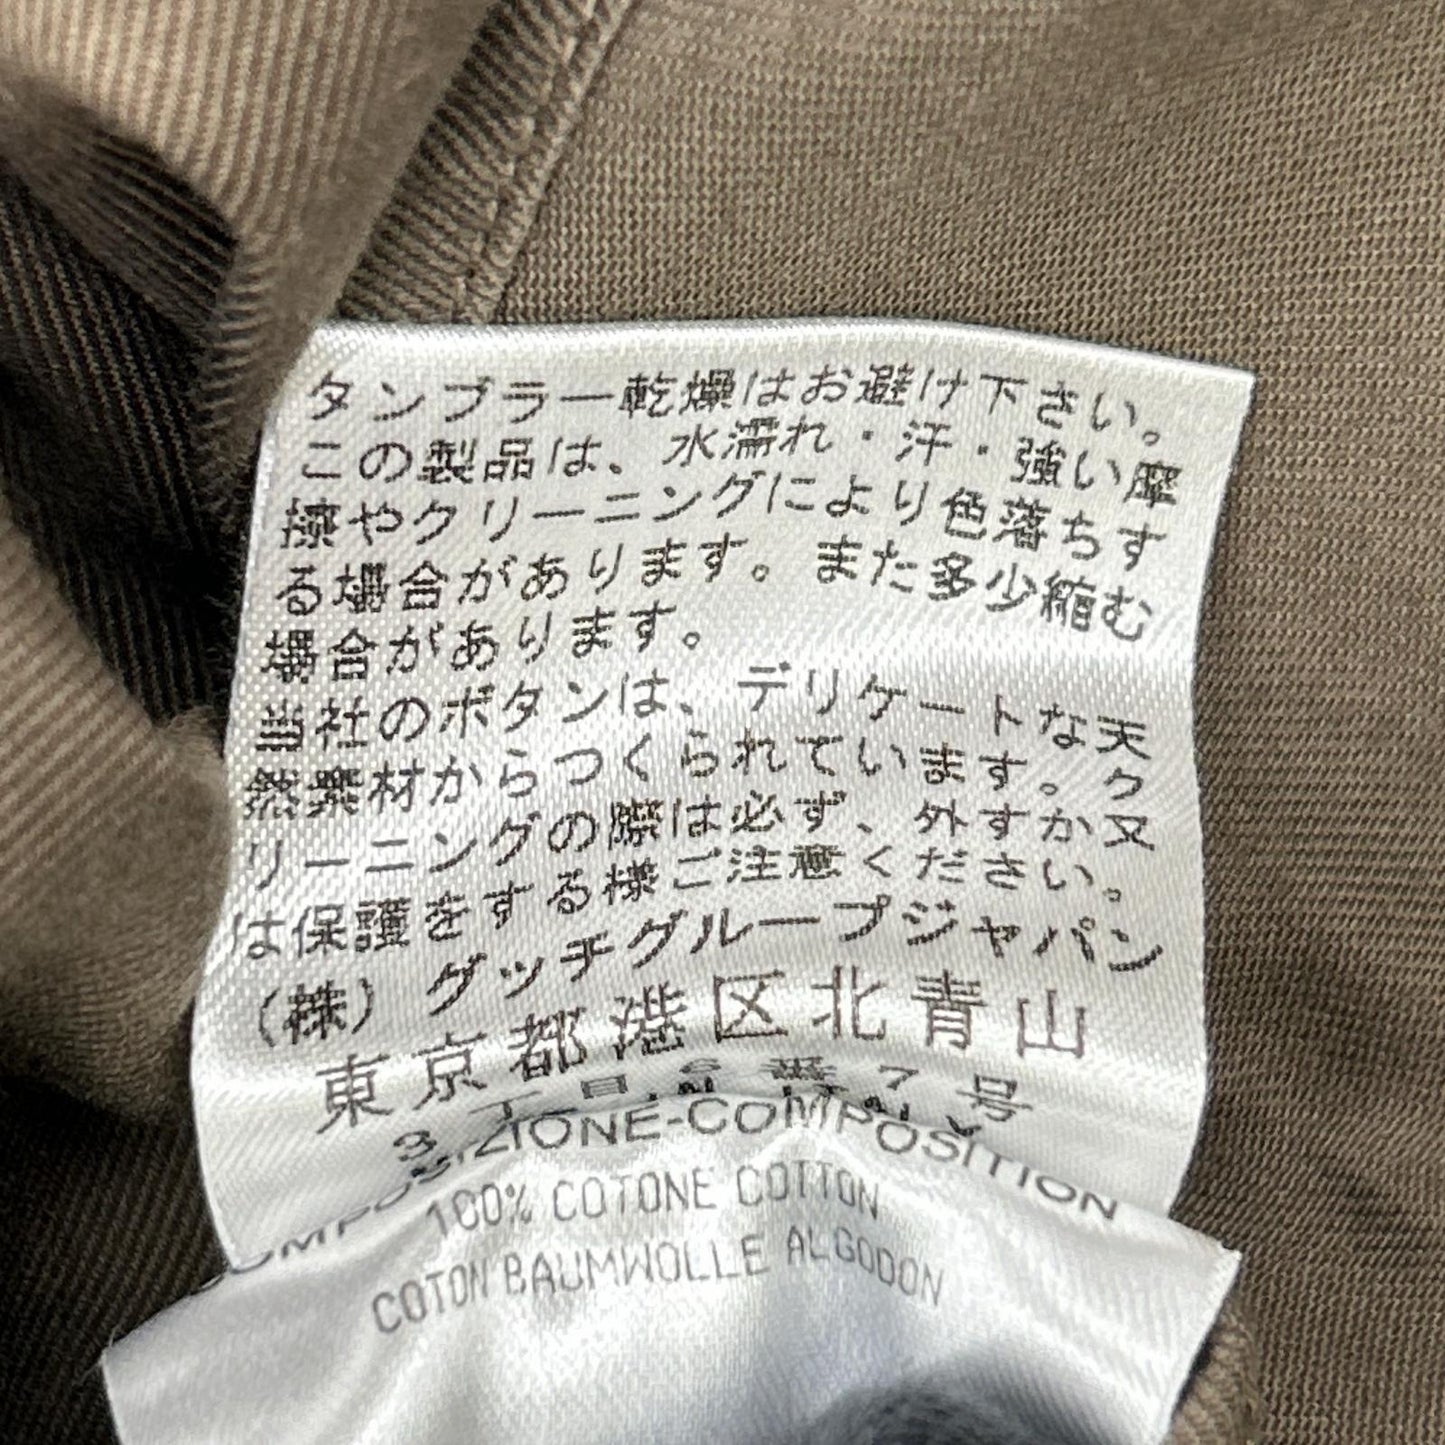 タンブラー乾燥はお避け下さい。
この製品は、水濡れ・汗・強い摩
擦やクリーニングにより色落ちす
る場合があります。また多少縮む
場合があります。
当社のボタンは、デリケートな天
然素材からつくられています。ク
リーニングの際は必ず、外すか又
は保護をする様ご注意ください。
(株) グッチグループジャパン
東京都港区北青山
3丁目6番7号
COMPOSIZIONE-COMPOSITION
100% COTONE COTTON
COTON BAUMWOLLE ALGODON